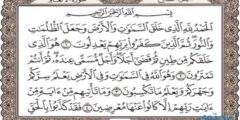 بِسْمِ اللَّهِ الرَّحْمَٰنِ الرَّحِيمِ
الْحَمْدُ لِلَّهِ الَّذِي خَلَقَ السَّمَٰوَٰتِ وَالْأَرْضَ وَجَعَلَ الظُّلُمَٰتِ
وَالنُّورَ ثُمَّ الَّذِينَ كَفَرُوا بِرَبِّهِمْ يَعْدِلُونَ ۝ هُوَ الَّذِي
خَلَقَكُم مِّن طِينٍ ثُمَّ قَضَىٰ أَجَلًا وَأَجَلٌ مُّسَمًّى عِندَهُ ثُمَّ أَنتُمْ
تَمْتَرُونَ ۝ وَهُوَ اللَّهُ فِي السَّمَٰوَٰتِ وَفِي الْأَرْضِ يَعْلَمُ سِرَّكُمْ
وَجَهْرَكُمْ وَيَعْلَمُ مَا تَكْسِبُونَ ۝ وَمَا تَأْتِيهِم مِّنْ ءَايَةٍ مِّنْ
ءَايَٰتِ رَبِّهِمْ إِلَّا كَانُوا عَنْهَا مُعْرِضِينَ ۝ فَقَدْ كَذَّبُوا بِالْحَقِّ